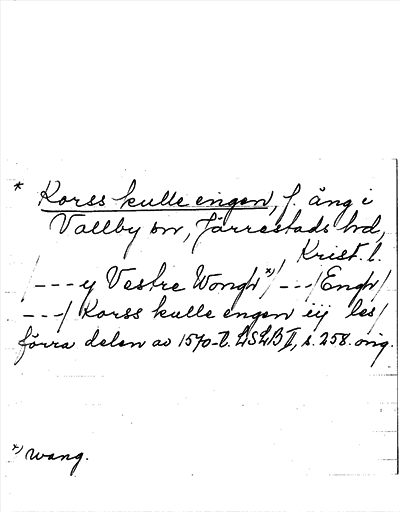 * Korss kulle engen, f. äng i
Vallby sn, Järrestads hd,
Krist. l.
/---y Vestre Wongh *)/---/Engh/
---/ Korss kulle engen iij les/
förra delen av 1570-t. LSLB II, s. 258. orig.
*) wang.